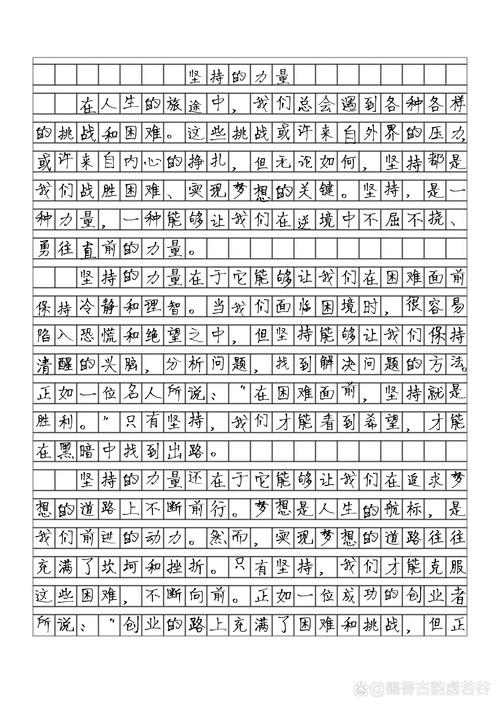 坚持的力量
在人生的旅途中，我们总会遇到各种各样
的挑战和困难。这些挑战或许来自外界的压力，
或许来自内心的挣扎，但无论如何，坚持都是
我们战胜困难、实现梦想的关键。坚持，是一
种力量，一种能够让我们在逆境中不屈不挠、
勇往直前的力量。
坚持的力量在于它能够让我们在困难面前
保持冷静和理智。当我们面临困境时，很容易
陷入恐慌和绝望之中，但坚持能够让我们保持
清醒的头脑，分析问题，找到解决问题的方法。
正如一位名人所说："在困难面前，坚持就是
胜利。"只有坚持，我们才能看到希望，才能
在黑暗中找到出路。
坚持的力量还在于它能够让我们在追求梦
想的道路上不断前行。梦想是人生的航标，是
我们前进的动力。然而，实现梦想的道路往往
充满了坎坷和挫折。只有坚持，我们才能克服
这些困难，不断向前。正如一位成功的创业者
所说："创业的路上充满了困难和挑战，但正